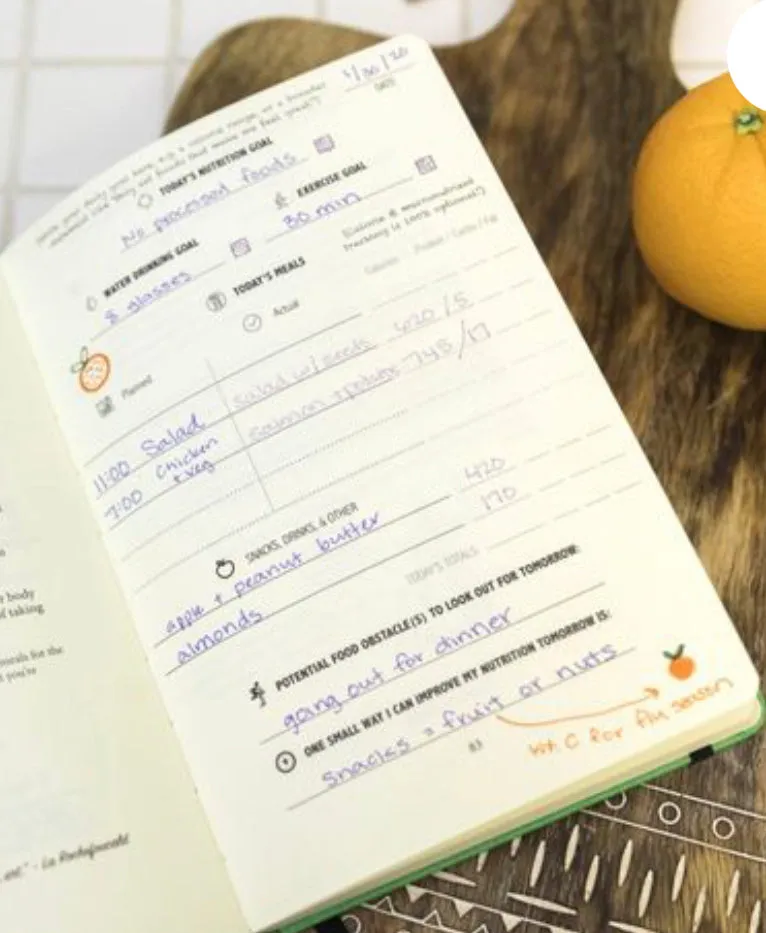 1/30/20
DATE
TODAY'S NUTRITION GOAL
No processed foods
EXERCISE GOAL
30 min
WATER DRINKING GOAL
8 glasses
TODAY'S MEALS
(Calorie & macronutrient
tracking is 100% optional!)
Calories Protein / Carbs / Fat
Planned
Actual
11:00 Salad
Salad w/ seeds 620 / 5
7:00 Chicken
+ veg
Salmon + potato 745 / 17
SNACKS, DRINKS, & OTHER
apple + peanut butter 420
almonds 170
TODAY'S TOTALS
POTENTIAL FOOD OBSTACLE(S) TO LOOK OUT FOR TOMORROW:
going out for dinner
ONE SMALL WAY I CAN IMPROVE MY NUTRITION TOMORROW IS:
snacks = fruit or nuts
vit. C for flu season
83
body
of taking
for the
you're
- La Rochefoucauld